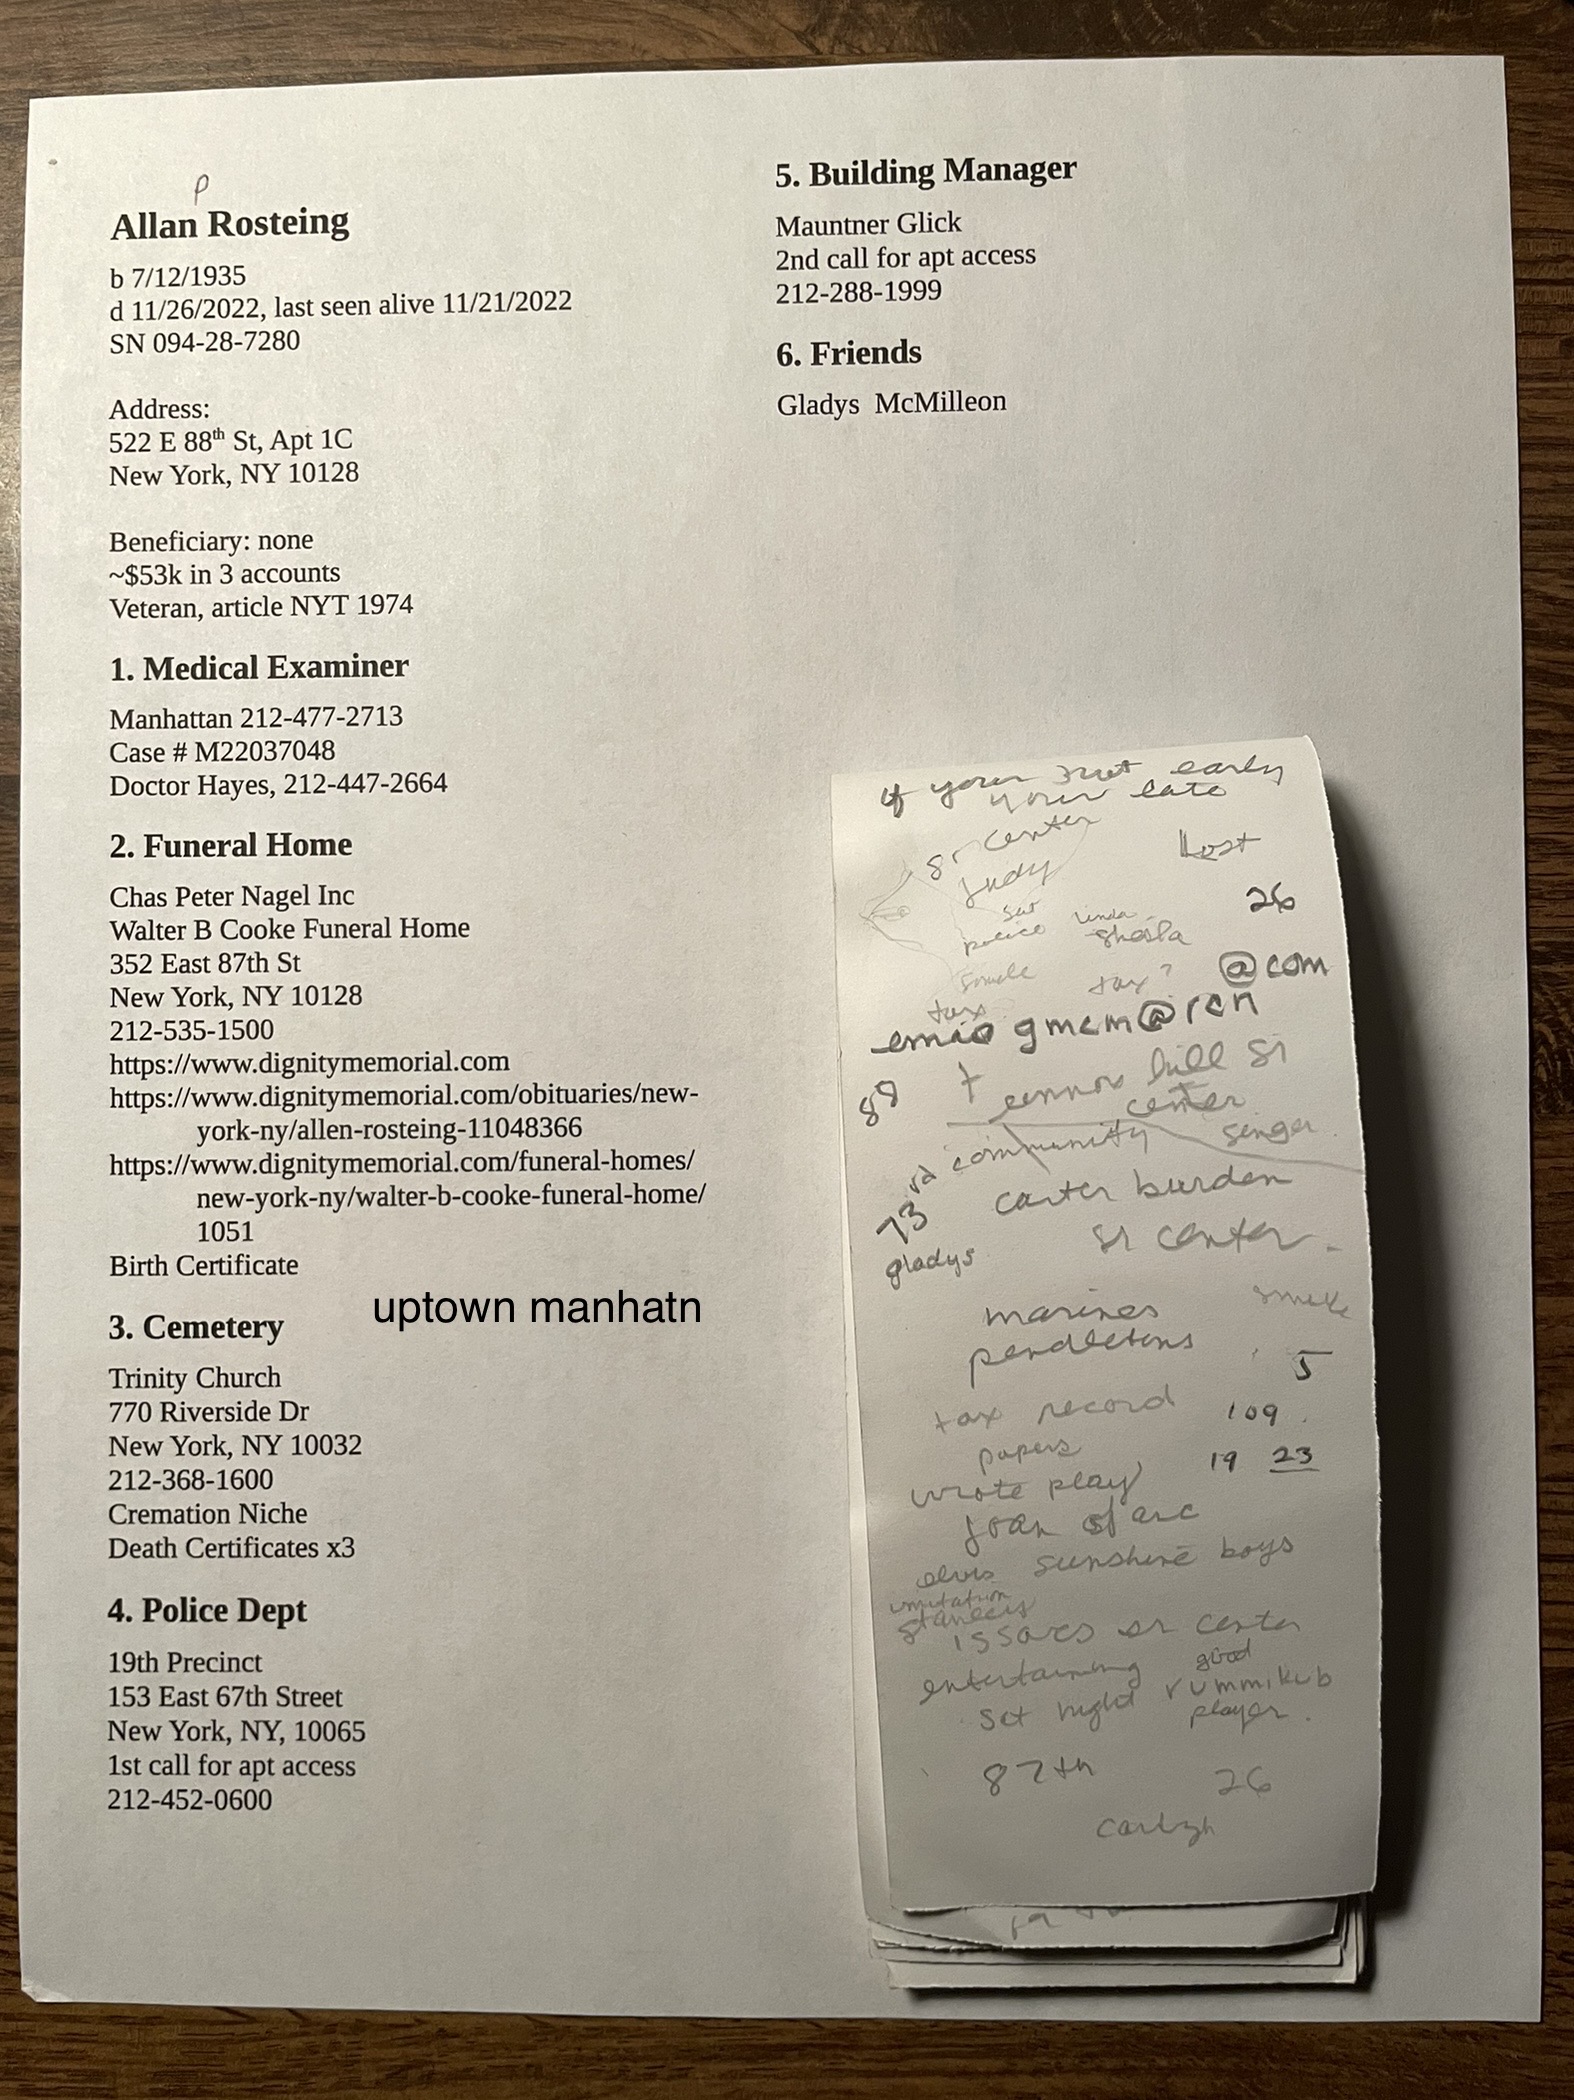 p
Allan Rosteing
b 7/12/1935
d 11/26/2022, last seen alive 11/21/2022
SN 094-28-7280
Address:
522 E 88th St, Apt 1C
New York, NY 10128
Beneficiary: none
~$53k in 3 accounts
Veteran, article NYT 1974
1. Medical Examiner
Manhattan 212-477-2713
Case # M22037048
Doctor Hayes, 212-447-2664
2. Funeral Home
Chas Peter Nagel Inc
Walter B Cooke Funeral Home
352 East 87th St
New York, NY 10128
212-535-1500
https://www.dignitymemorial.com
https://www.dignitymemorial.com/obituaries/new-
york-ny/allen-rosteing-11048366
https://www.dignitymemorial.com/funeral-homes/
new-york-ny/walter-b-cooke-funeral-home/
1051
Birth Certificate
uptown manhatn
3. Cemetery
Trinity Church
770 Riverside Dr
New York, NY 10032
212-368-1600
Cremation Niche
Death Certificates x3
4. Police Dept
19th Precinct
153 East 67th Street
New York, NY, 10065
1st call for apt access
212-452-0600
5. Building Manager
Mauntner Glick
2nd call for apt access
212-288-1999
6. Friends
Gladys McMilleon
if your not early
your late
sr center
Lost
Judy
26
police
linda
sheila
@com
tax?
tax
gmcm@rcn
88
hill sr
center
community
singer
73rd
carter burden
gladys
sr center
marines
smoke
pendletons
5
tax record
109
papers
19 23
wrote play
Joan of arc
elvis sunshine boys
imitation
sr center
entertaining good
night rummikub
player.
87th
26